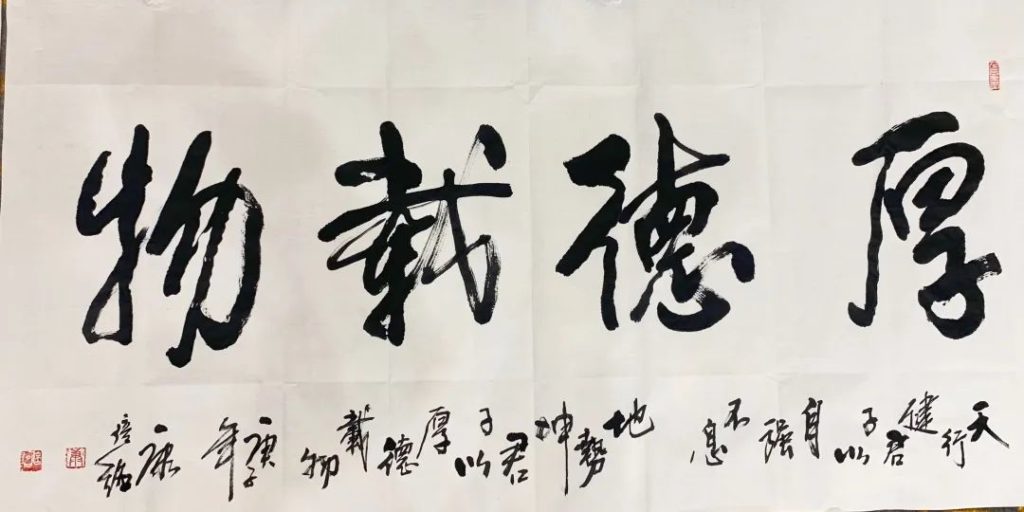 厚德載物
天行健君子以自强不息地勢坤君子以厚德載物庚子年康培